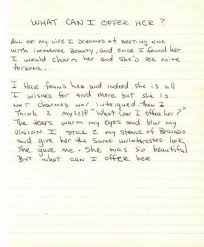 WHAT CAN I OFFER HER ?
ALL OF MY LIFE I DREAMED OF MEETING ONE
WITH IMMENSE BEAUTY, AND ONCE I FOUND HER
I WOULD CHARM HER AND SHE'D BE MINE
FOREVER.
I HAVE FOUND HER AND INDEED SHE IS ALL
I WISHED FOR AND MORE BUT SHE IS
NOT CHARMED NOR INTRIGUED. THEN I
THINK 2 MYSELF "WHAT CAN I OFFER HER?"
THE TEARS WARM MY EYES AND BLUR MY
VISION I STICK 2 MY STANCE OF BRAVADO
AND GIVE HER THE SAME UNINTERESTED LOOK
SHE GAVE ME. SHE WAS SO BEAUTIFUL
BUT WHAT CAN I OFFER HER